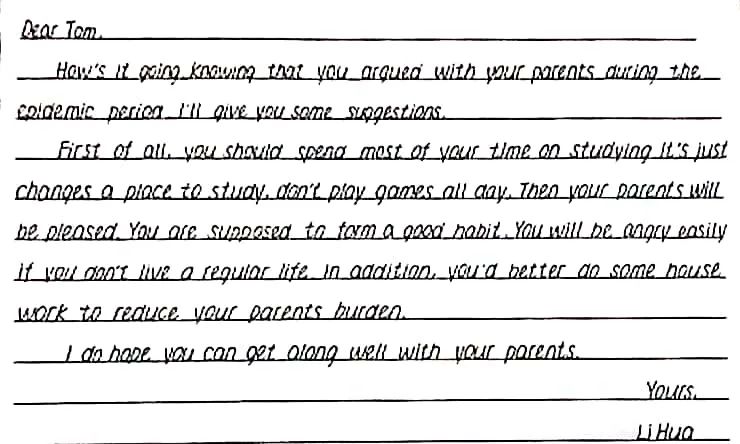 Dear Tom.
How's it going knowing that you argued with your parents during the
epidemic period. I'll give you some suggestions.
First of all, you should spend most of your time on studying it's just
changes a place to study, don't play games all day. Then your parents will
be pleased. You are supposed to form a good habit. You will be angry easily
if you don't live a regular life. In addition, you'd better do some house
work to reduce your parents burden.
I do hope you can get along well with your parents.
Yours,
Li Hua